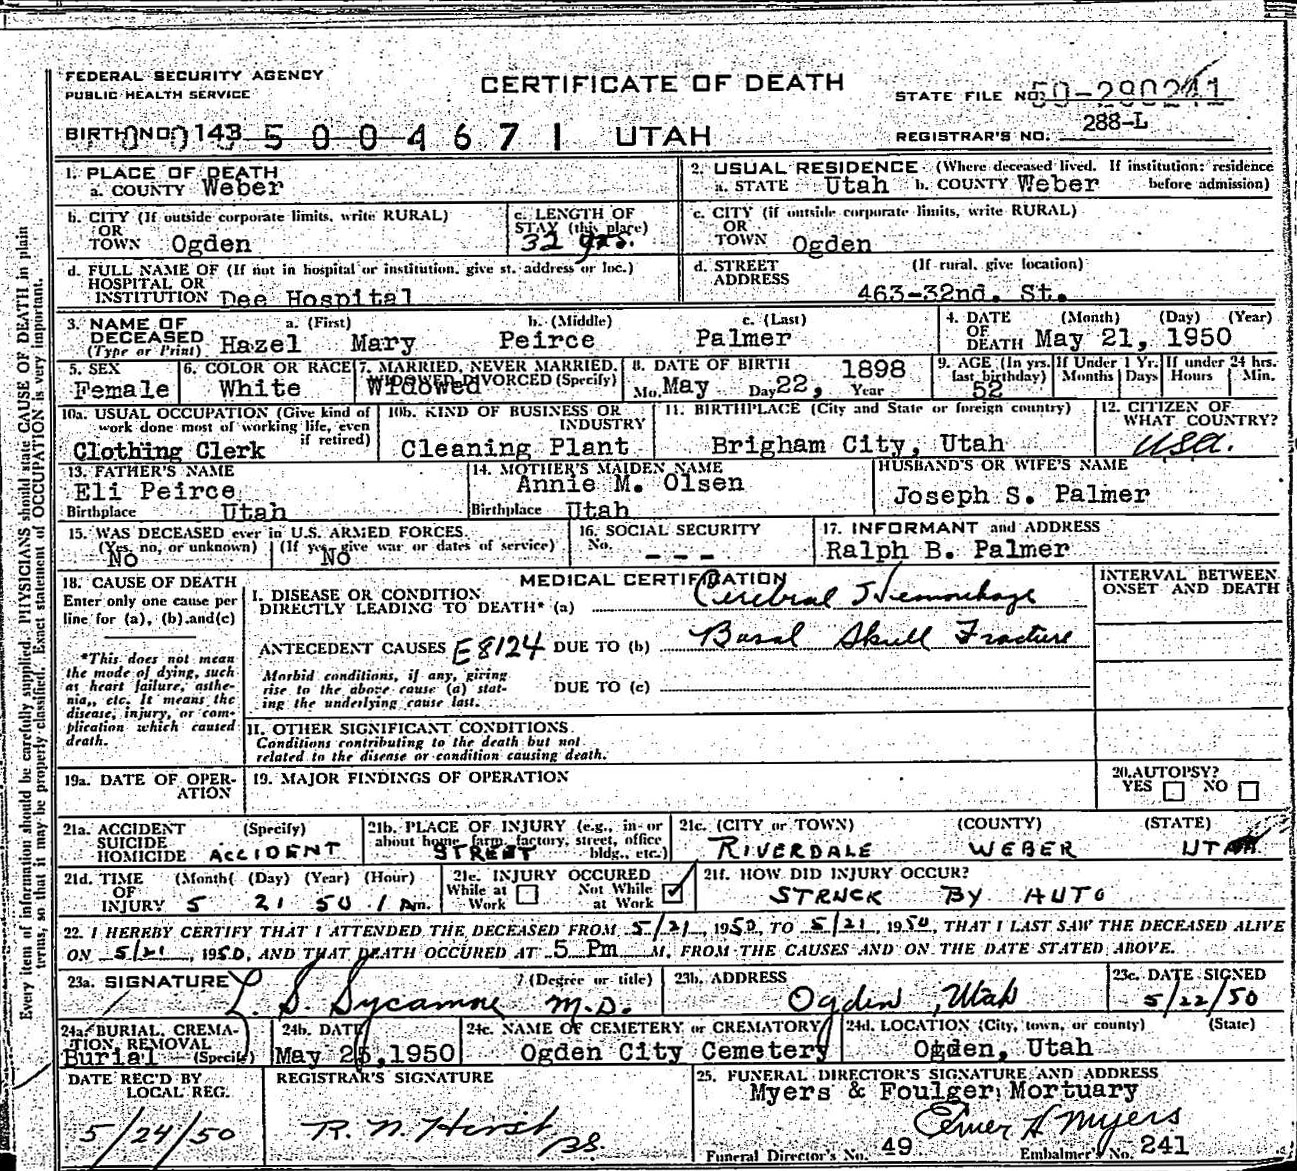 FEDERAL SECURITY AGENCY
PUBLIC HEALTH SERVICE
CERTIFICATE OF DEATH
STATE FILE NO. 50-290241
BIRTH NO. 143 5004671 UTAH
REGISTRAR'S NO. 288-L
1. PLACE OF DEATH
a. COUNTY Weber
2. USUAL RESIDENCE (Where deceased lived. If institution: residence before admission)
a. STATE Utah b. COUNTY Weber
b. CITY (If outside corporate limits, write RURAL)
OR
TOWN Ogden
c. LENGTH OF
STAY (this place)
32 yrs.
c. CITY (if outside corporate limits, write RURAL)
OR
TOWN Ogden
d. FULL NAME OF (If not in hospital or institution, give st. address or loc.)
HOSPITAL OR
INSTITUTION Dee Hospital
d. STREET (If rural, give location)
ADDRESS 463-32nd. St.
3. NAME OF DECEASED (Type or Print)
a. (First) b. (Middle) c. (Last)
Hazel Mary Peirce Palmer
4. DATE OF DEATH (Month) (Day) (Year)
May 21, 1950
5. SEX
Female
6. COLOR OR RACE
White
7. MARRIED, NEVER MARRIED,
WIDOWED, DIVORCED (Specify)
Widowed
8. DATE OF BIRTH 1898
Mo. May Day 22, Year
9. AGE (In yrs. last birthday) If Under 1 Yr. If under 24 hrs.
52 Months Days Hours Min.
10a. USUAL OCCUPATION (Give kind of
work done most of working life, even
if retired)
Clothing Clerk
10b. KIND OF BUSINESS OR
INDUSTRY
Cleaning Plant
11. BIRTHPLACE (City and State or foreign country)
Brigham City, Utah
12. CITIZEN OF
WHAT COUNTRY?
USA.
13. FATHER'S NAME
Eli Peirce
Birthplace Utah
14. MOTHER'S MAIDEN NAME
Annie M. Olsen
Birthplace Utah
HUSBAND'S OR WIFE'S NAME
Joseph S. Palmer
15. WAS DECEASED ever in U.S. ARMED FORCES.
(Yes, no, or unknown) (If yes, give war or dates of service)
No No
16. SOCIAL SECURITY
No. - - -
17. INFORMANT and ADDRESS
Ralph B. Palmer
18. CAUSE OF DEATH
Enter only one cause per
line for (a), (b) and (c)
*This does not mean
the mode of dying, such
as heart failure, asthe-
nia, etc. It means the
disease, injury, or com-
plication which caused
death.
MEDICAL CERTIFICATION
INTERVAL BETWEEN
ONSET AND DEATH
I. DISEASE OR CONDITION
DIRECTLY LEADING TO DEATH* (a) Cerebral Hemorrhage
ANTECEDENT CAUSES E8124 DUE TO (b) Basal Skull Fracture
Morbid conditions, if any, giving
rise to the above cause (a) stat-
ing the underlying cause last.
DUE TO (c)
II. OTHER SIGNIFICANT CONDITIONS.
Conditions contributing to the death but not
related to the disease or condition causing death.
19a. DATE OF OPER-
ATION
19. MAJOR FINDINGS OF OPERATION
20. AUTOPSY?
YES NO
21a. ACCIDENT (Specify)
SUICIDE
HOMICIDE ACCIDENT
21b. PLACE OF INJURY (e.g., in or
about home, farm, factory, street, office
bldg., etc.)
STREET
21c. (CITY or TOWN) (COUNTY) (STATE)
RIVERDALE WEBER UTAH
21d. TIME (Month) (Day) (Year) (Hour)
OF
INJURY 5 21 50 1 Am.
21e. INJURY OCCURED
While at Work Not While at Work
21f. HOW DID INJURY OCCUR?
STRUCK BY AUTO
22. I HEREBY CERTIFY THAT I ATTENDED THE DECEASED FROM 5/21, 1950, TO 5/21, 1950, THAT I LAST SAW THE DECEASED ALIVE
ON 5/21, 1950, AND THAT DEATH OCCURED AT 5 Pm M. FROM THE CAUSES AND ON THE DATE STATED ABOVE.
23a. SIGNATURE (Degree or title)
L. S. Sycamore M.D.
23b. ADDRESS
Ogden, Utah
23c. DATE SIGNED
5/22/50
24a. BURIAL, CREMA-
TION, REMOVAL
Burial (Specify)
24b. DATE
May 25, 1950
24c. NAME OF CEMETERY or CREMATORY
Ogden City Cemetery
24d. LOCATION (City, town, or county) (State)
Ogden, Utah
DATE REC'D BY
LOCAL REG.
5/24/50
REGISTRAR'S SIGNATURE
R. N. Hirst
25. FUNERAL DIRECTOR'S SIGNATURE AND ADDRESS
Myers & Foulger Mortuary
Elmer H Myers
Funeral Director's No. 49 Embalmer's No. 241
Every item of information should be carefully supplied. PHYSICIANS should state CAUSE OF DEATH in plain
terms, so that it may be properly classified. Exact statement of OCCUPATION is very important.